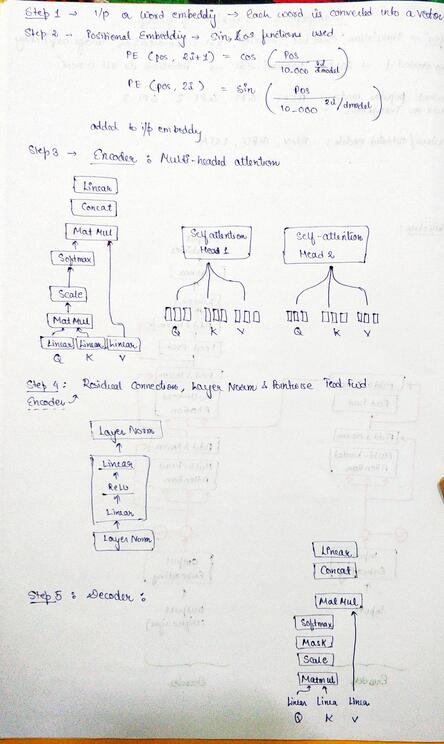 Step 1 → i/p or word embeddig → Each word is converted into a vector
Step 2 - Positional Embeddig → Sin, & cos functions used.
PE (pos, 2i+1) = cos (Pos / 10.000 2i/dmodel)
PE (pos, 2i) = sin (Pos / 10.000 2i/dmodel)
added to i/p embeddg
Step 3 → Encoder : Multi-headed attention
Linear
Concat
Mat Mul
Softmax
Scale
MatMul
Linear Linear Linear
Q K V
Self attention
Head 1
Q K V
Self-attention
Head 2
Q K V
Step 4 : Residual Connection, Layer Norm & Pointwise Feed Fwd
Encoder
Layer Norm
Linear
ReLu
Linear
Layer Norm
Step 5 : Decoder :
Linear
Concat
MatMul
Softmax
Mask
Scale
Matmul
Linear Linea Linea
Q K V